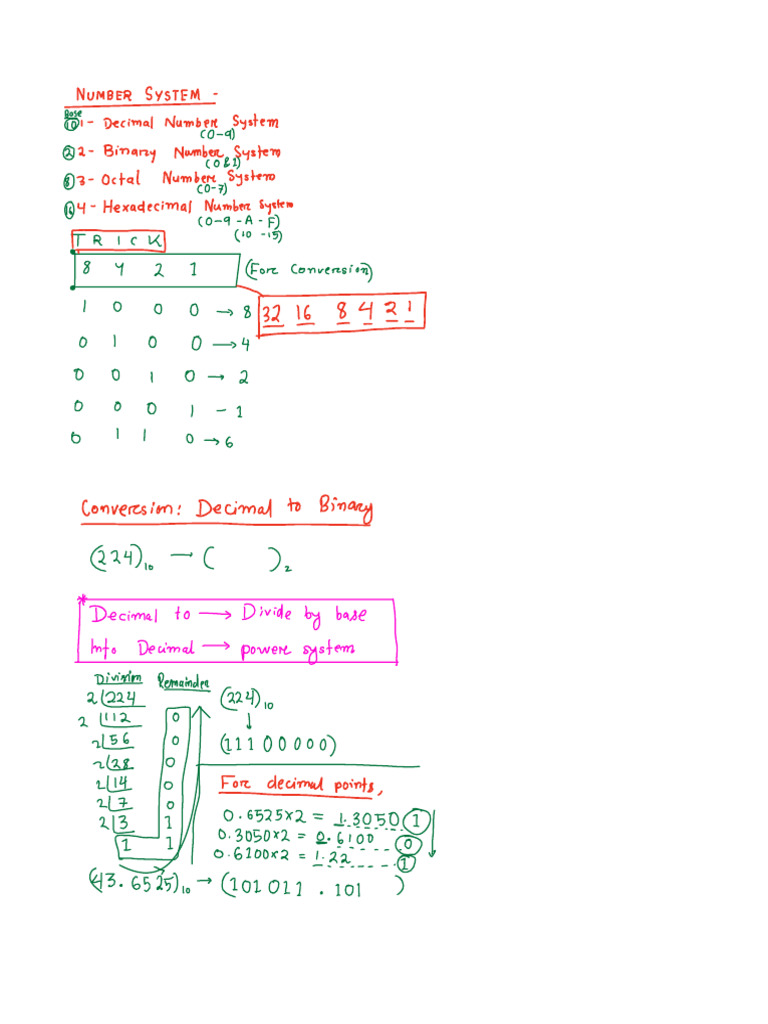 NUMBER SYSTEM -
Base
10 1 - Decimal Number System
(0-9)
2 2 - Binary Number System
(0 & 1)
8 3 - Octal Number System
(0-7)
16 4 - Hexadecimal Number System
(0-9 - A - F)
(10 - 15)
TRICK
8 4 2 1 (For Conversion)
1 0 0 0 → 8 32 16 8 4 2 1
0 1 0 0 → 4
0 0 1 0 → 2
0 0 0 1 - 1
0 1 1 0 → 6
Conversion: Decimal to Binary
(224)10 → ( )2
* Decimal to → Divide by base
Into Decimal → power system
Division Remainder
2 224 (224)10
2 112 0 ↓
2 56 0 (11100000)
2 28 0
2 14 0 For decimal points,
2 7 0
2 3 1 0.6525×2 = 1.3050 1
1 1 0.3050×2 = 0.6100 0
0.6100×2 = 1.22 1
(43.6525)10 → (101011.101 )